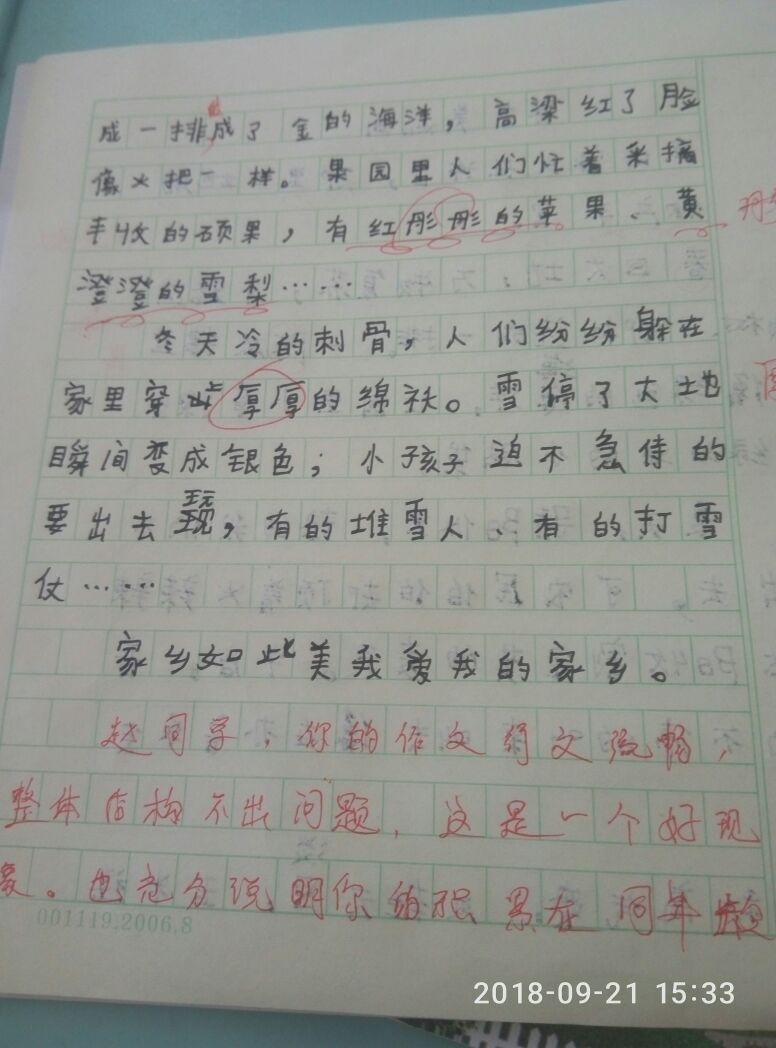 成一排成了金的海洋，高梁红了脸
像火把一样。果园里人们忙着采摘
丰收的硕果，有红彤彤的苹果、黄
澄澄的雪梨……
冬天冷的刺骨，人们纷纷躲在
家里穿上厚厚的绵袄。雪停了大地
瞬间变成银色；小孩子迫不急待的
要出去玩，有的堆雪人、有的打雪
仗……
家乡如此美我爱我的家乡。
赵同学，你的作文行文流畅，
整体结构不出问题，这是一个好现
象。也充分说明你的积累在同年龄
001119.2006.8
2018-09-21 15:33